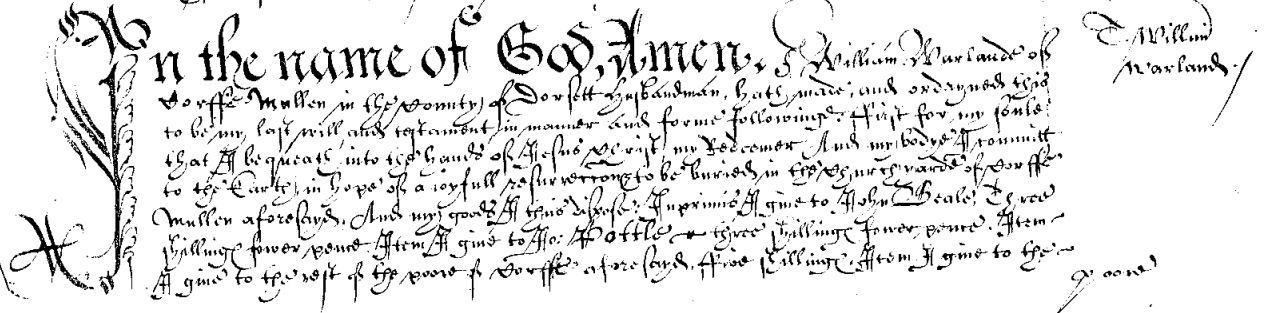 In the name of God, Amen. I William Warlande of
Corffe Mullen in the County of Dorsett Husbandman, hath made and ordayned this
to be my last will and testament in manner and forme followinge. First for my soule
that I bequeath into the hands of Jesus Christ my Redeemer And my bodye I committ
to the Earth in hope of a joyfull resurrection to be buried in the Churchyarde of Corffe
Mullen aforesayd. And my goods I thus dispose. Inprimis I give to John Beale Three
shillings fower pence Item I give to Pottle three shillings fower pence. Item
I give to the rest of the poore of Corffe aforesayd, ffive shillings. Item I give to the
poore
T. Willmi
Warland